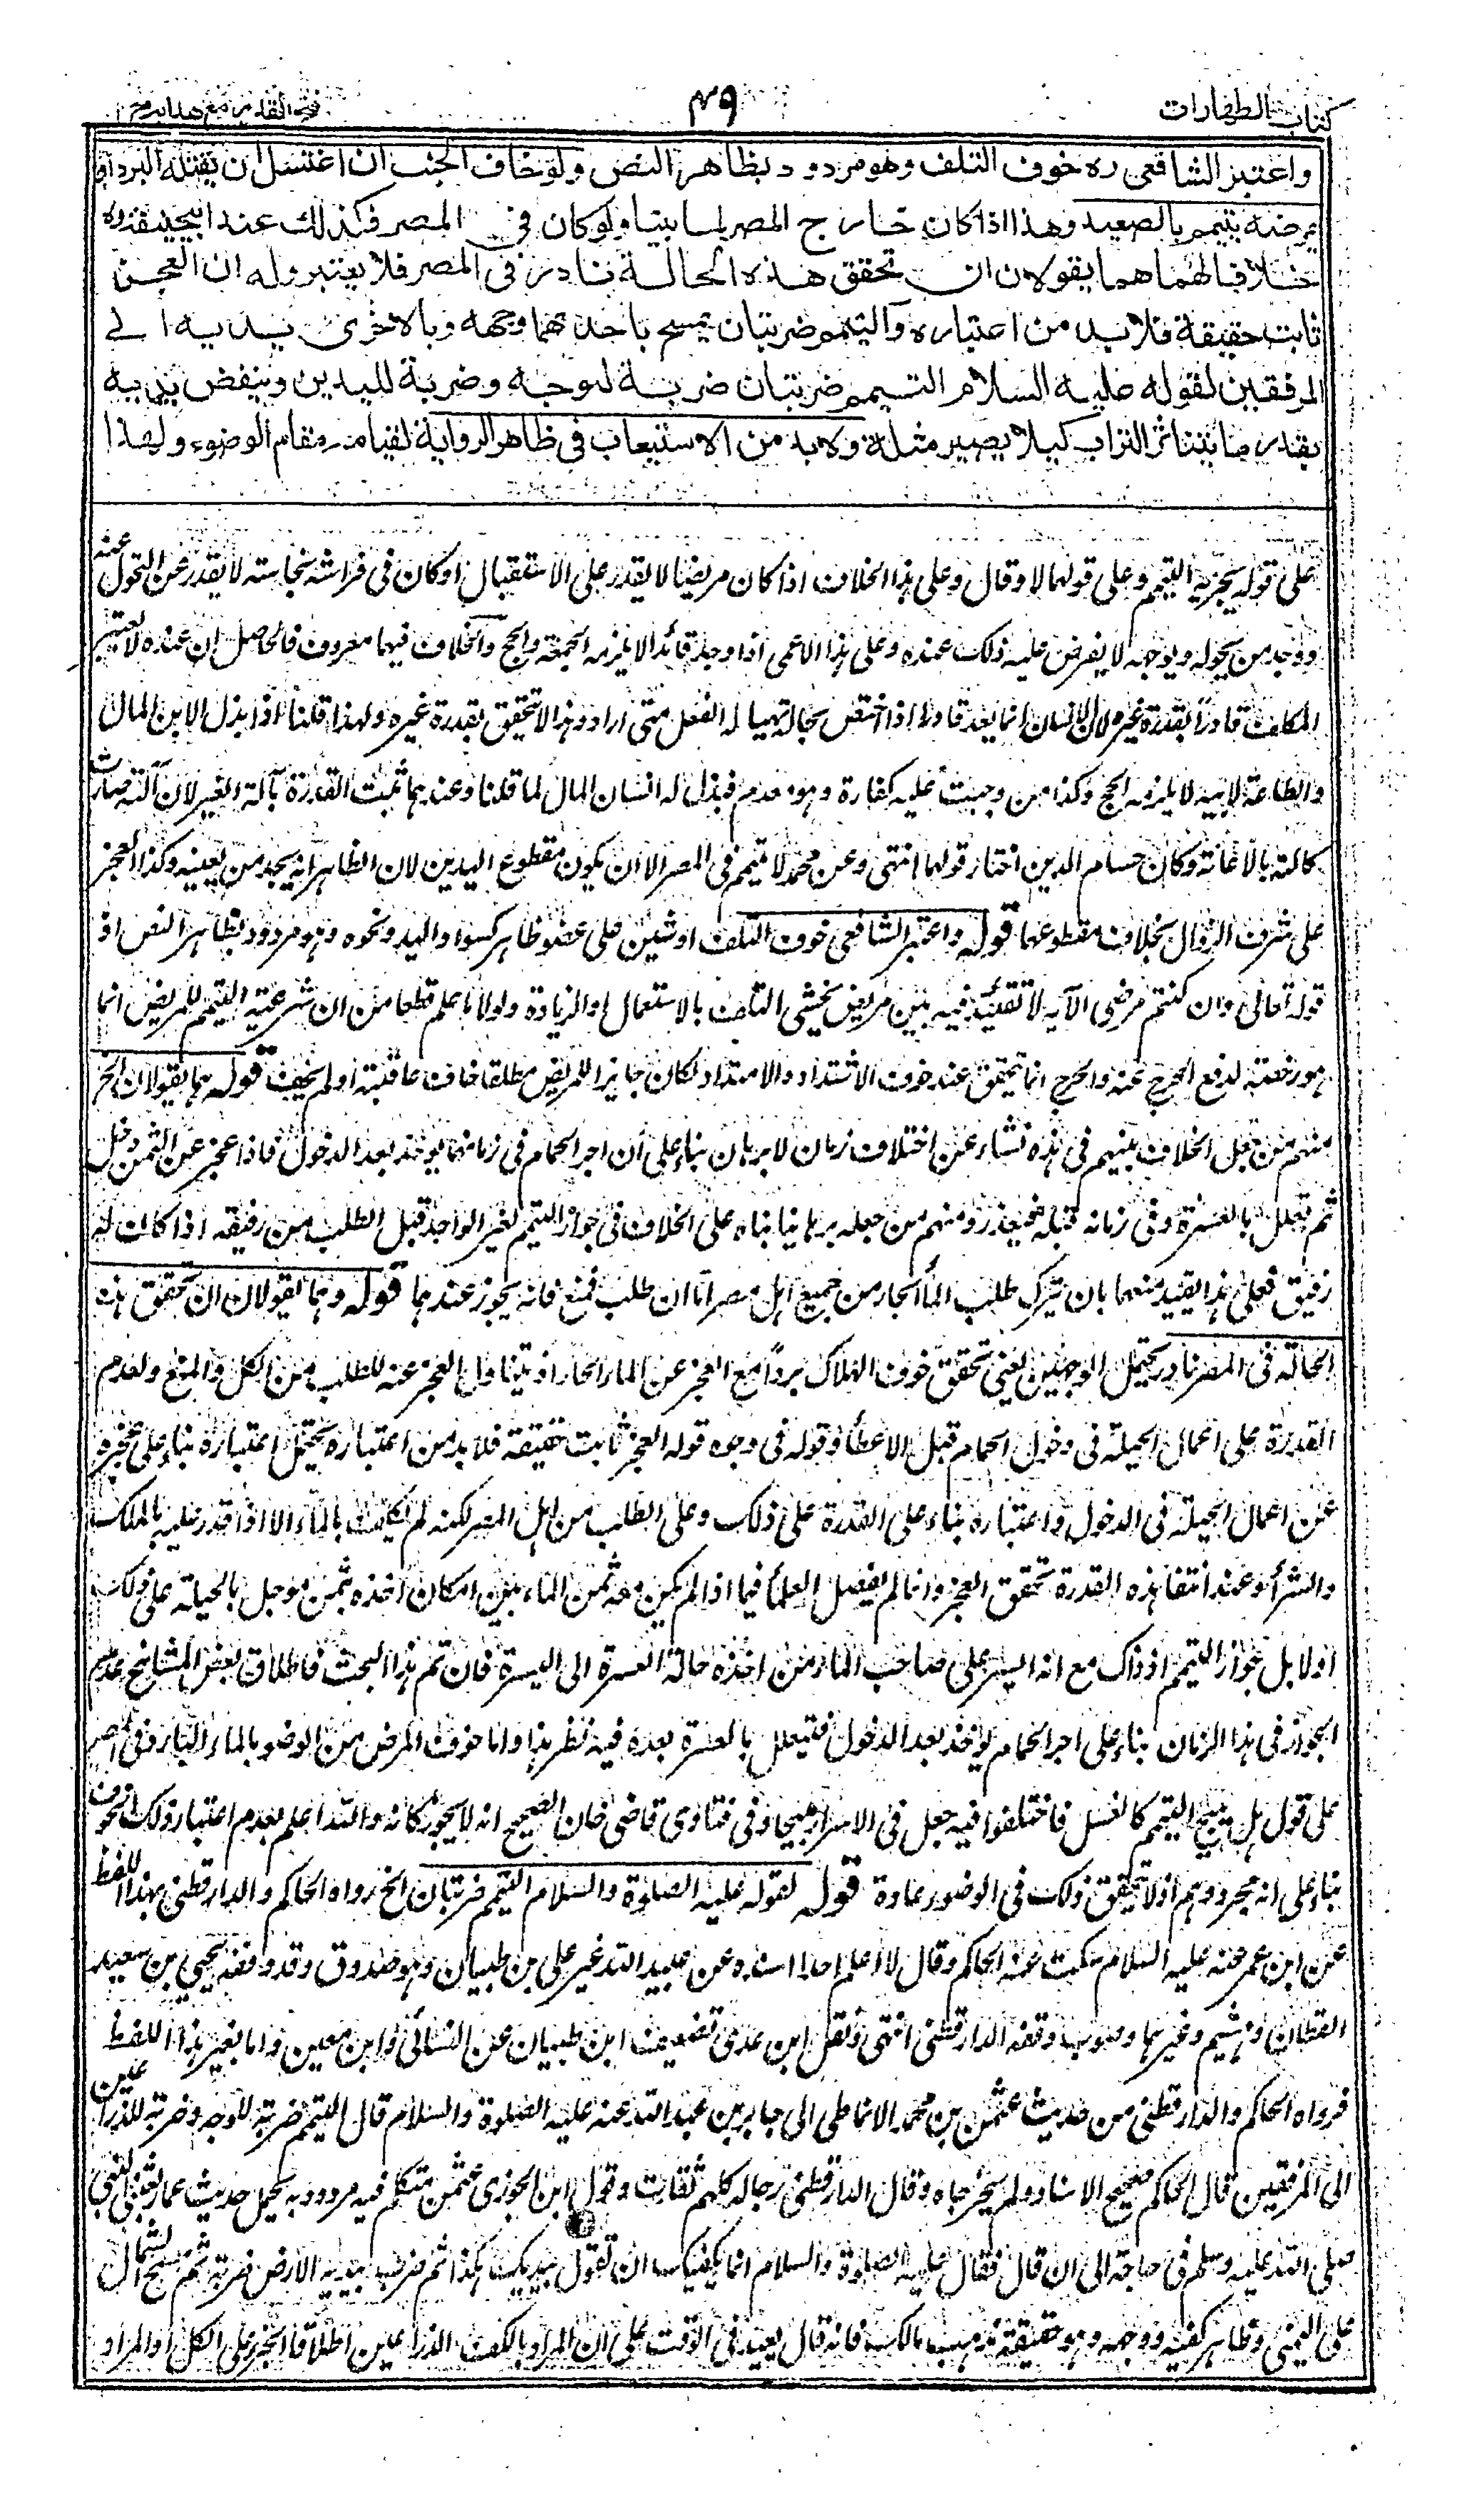 كتاب الطهارات
٤٩
فتح القدير مع هدايه ج ١
واعتبر الشافعي ره خوف التلف وهو مردود بظاهر النص ولو خاف الجنب ان اغتسل ان يقتله البرد او
يمرضه يتيمم بالصعيد وهذا اذا كان خارج المصر لما بينا ولو كان في المصر فكذلك عند ابيحنيفة ره
خلافا لهما هما يقولان ان تحقق هذه الحالة نادر في المصر فلا يعتبر وله ان العجز
ثابت حقيقة فلا بد من اعتباره والتيمم ضربتان يمسح باحدهما وجهه وبالاخرى يديه الى
المرفقين لقوله عليه السلام التيمم ضربتان ضربة للوجه وضربة لليدين وينفض يديه
بقدر ما يتناثر التراب كيلا يصير مثلة ولا بد من الاستيعاب في ظاهر الرواية لقيامه مقام الوضوء ولهذا
على قوله يجزيه التيمم وعلى قولهما لا وقال وعلى هذا الخلاف اذا كان مريضا لا يقدر على الاستقبال او كان في فراشه نجاسة لا يقدر عن التحول عنه
ووجد من يحوله ويوجهه لا يفرض عليه ذلك عنده وعلى هذا الاعمى اذا وجد قائدا لا يلزمه الجمعة والحج والخلاف فيهما معروف فالحاصل ان عنده لا يعتبر
المكلف قادرا بقدرة غيره لان الانسان انما يعد قادرا اذا اختص بحالة تهيأ له الفعل متى اراد وهذا لا تحقق بقدرة غيره ولهذا قلنا اذا بذل الابن المال
والطاعة لابيه لا يلزمه الحج وكذا من وجبت عليه كفارة وهو معدم فبذل له انسان المال لما قلنا وعندهما تثبت القدرة بآلة الغير لان آلته صارت
كآلته بالاعانة وكان حسام الدين اختار قولهما انتهى وعن محمد لا تيمم في المصر الا ان يكون مقطوع اليدين لان الظاهر انه يجد من يعينه وكذا العجز
على شرف الزوال بخلاف مقطوعهما قوله واعتبر الشافعي خوف التلف او شين على عضو ظاهر كسواد اليد ونحوه وهو مردود بظاهر النص اذ
قوله تعالى وان كنتم مرضى الآيه لا تقييد فيه بين مريض يخشى التلف بالاستعمال او الزيادة ولولا ما علم قطعا من ان شرعية التيمم للمريض انما
هو رخصة لدفع الحرج عنه والحرج انما تحقق عند خوف الاشتداد والامتداد لكان جايزا للمريض مطلقا خاف عاقبته او لم يخف قوله هما يقولان الخ
منهم من جعل الخلاف بينهم في هذه نشاء عن اختلاف زمان لا برهان بناء على ان اجر الحمام في زمانهما يوخذ بعد الدخول فاذا عجز عن الثمن دخل
ثم تعلل بالعسرة وفي زمانه قبله فيعذر ومنهم من جعله برهانيا بناه على الخلاف في جواز التيمم لغير الواجد قبل الطلب من رفيقه اذا كان له
رفيق فعلى هذا يقيد منعهما بان يترك طلب الماء الحار من جميع اهل مصر اما ان طلب فمنع فانه يجوز عندهما قوله وهما يقولان ان تحقق هذه
الحالة في المصر نادر يحتمل الوجهين يعني تحقق خوف الهلاك بردا مع العجز عن الماء الحار اذ يتناول العجز عنه للطلب من الكل والمنع ولعدم
القدرة على اعمال الحيلة في دخول الحمام قبل الاعطاء وقوله في وجوه قوله العجز ثابت حقيقة فلا بد من اعتباره يحتمل اعتباره بناء على عجزه
عن اعمال الحيلة في الدخول واعتباره بناء على القدرة على ذلك وعلى الطلب من اهل المصر لكنه لم يكلف بالماء الا اذا قدر عليه بالملك
والشراء وعند انتفاء هذه القدرة تحقق العجز وانما لم يفصل العلماء فيما اذا لم يكن معه ثمن الماء بين امكان اخذه بثمن موجل بالحيلة على ذلك
اولا بل جواز التيمم اذ ذاك مع انه ايسر على صاحب الماء من اخذه حالة العسرة الى اليسرة فان تم هذا البحث فاطلاق بعض المشايخ عدم
الجواز في هذا الزمان بناء على اجر الحمام يوخذ بعد الدخول فيتعلل بالعسرة بعده فيه نظر هذا واما خوف المرض من الوضو بالماء البارد في المصر
على قول هل يبيح التيمم كالغسل فاختلفوا فيه جعل في الاسرار مبيحا وفي فتاوى قاضي خان الصحيح انه لا يجوز كانه والله اعلم بعدم اعتبار ذلك الخوف
بناء على انه مجرد وهم اذ لا تحقق ذلك في الوضوء عادة قوله لقوله عليه الصلوة والسلام التيمم ضربتان الخ رواه الحاكم والدارقطني بهذا اللفظ
عن ابن عمر عنه عليه السلام سكت عنه الحاكم وقال لا اعلم احدا اسنده عن عبيد الله غير علي بن ظبيان وهو صدوق وقد وقفه يحيى بن سعيد
القطان وهشيم وغيرهما وصوب وقفه الدارقطني انتهى ونقل ابن عدي تضعيف ابن ظبيان عن النسائي وابن معين واما بغير هذا اللفظ
فرواه الحاكم والدارقطني من حديث عثمن بن محمد الانماطي الى جابر بن عبد الله عنه عليه الصلوة والسلام قال التيمم ضربة للوجه وضربة للذراعين
الى المرفقين قال الحاكم صحيح الاسناد ولم يخرجاه وقال الدارقطني رجاله كلهم ثقات وقول ابن الجوزي عثمن متكلم فيه مردود به يحمل حديث عمار بعثني النبي
صلى الله عليه وسلم في حاجة الى ان قال فقال عليه الصلوة والسلام انما يكفيك ان تقول بيديك هكذا ثم ضرب بيديه الارض ضربة ثم مسح الشمال
على اليمنى وظاهر كفيه ووجهه وهو حقيقة مذهب مالك فانه قال يعيد في الوقت على ان المراد بالكف الذراعين اطلاقا الجزء على الكل او المراد